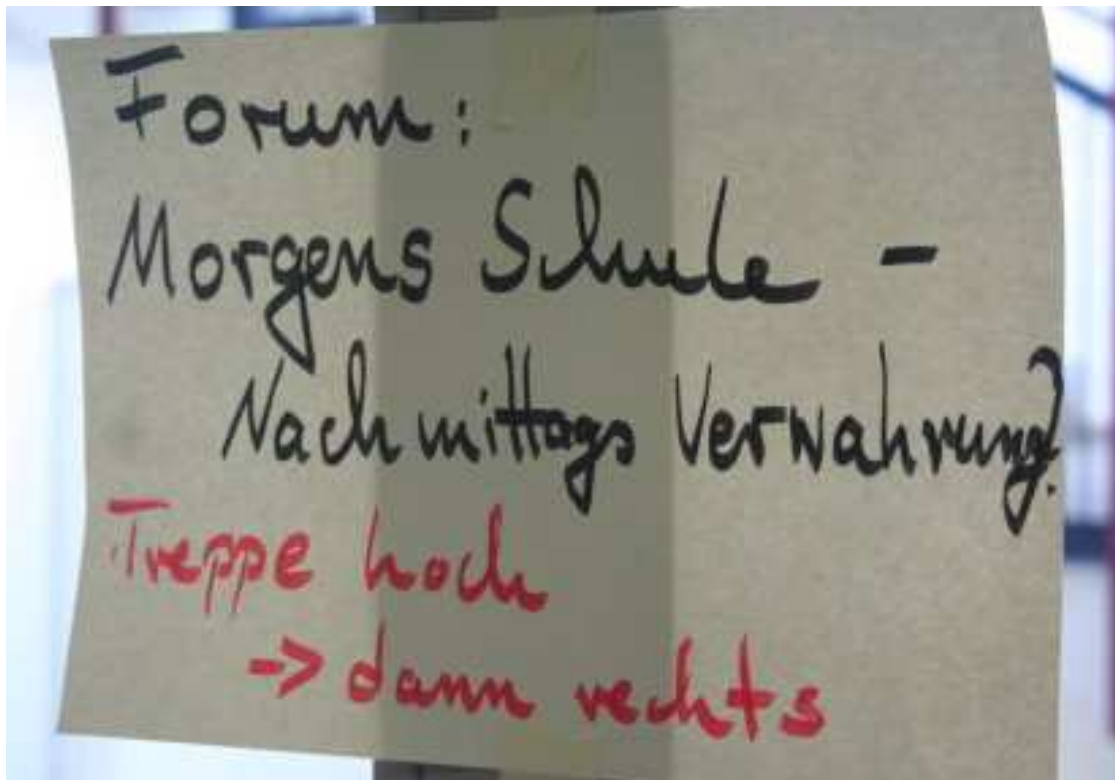 Forum:
Morgens Schule -
Nachmittags Verwahrung?
Treppe hoch
-> dann rechts